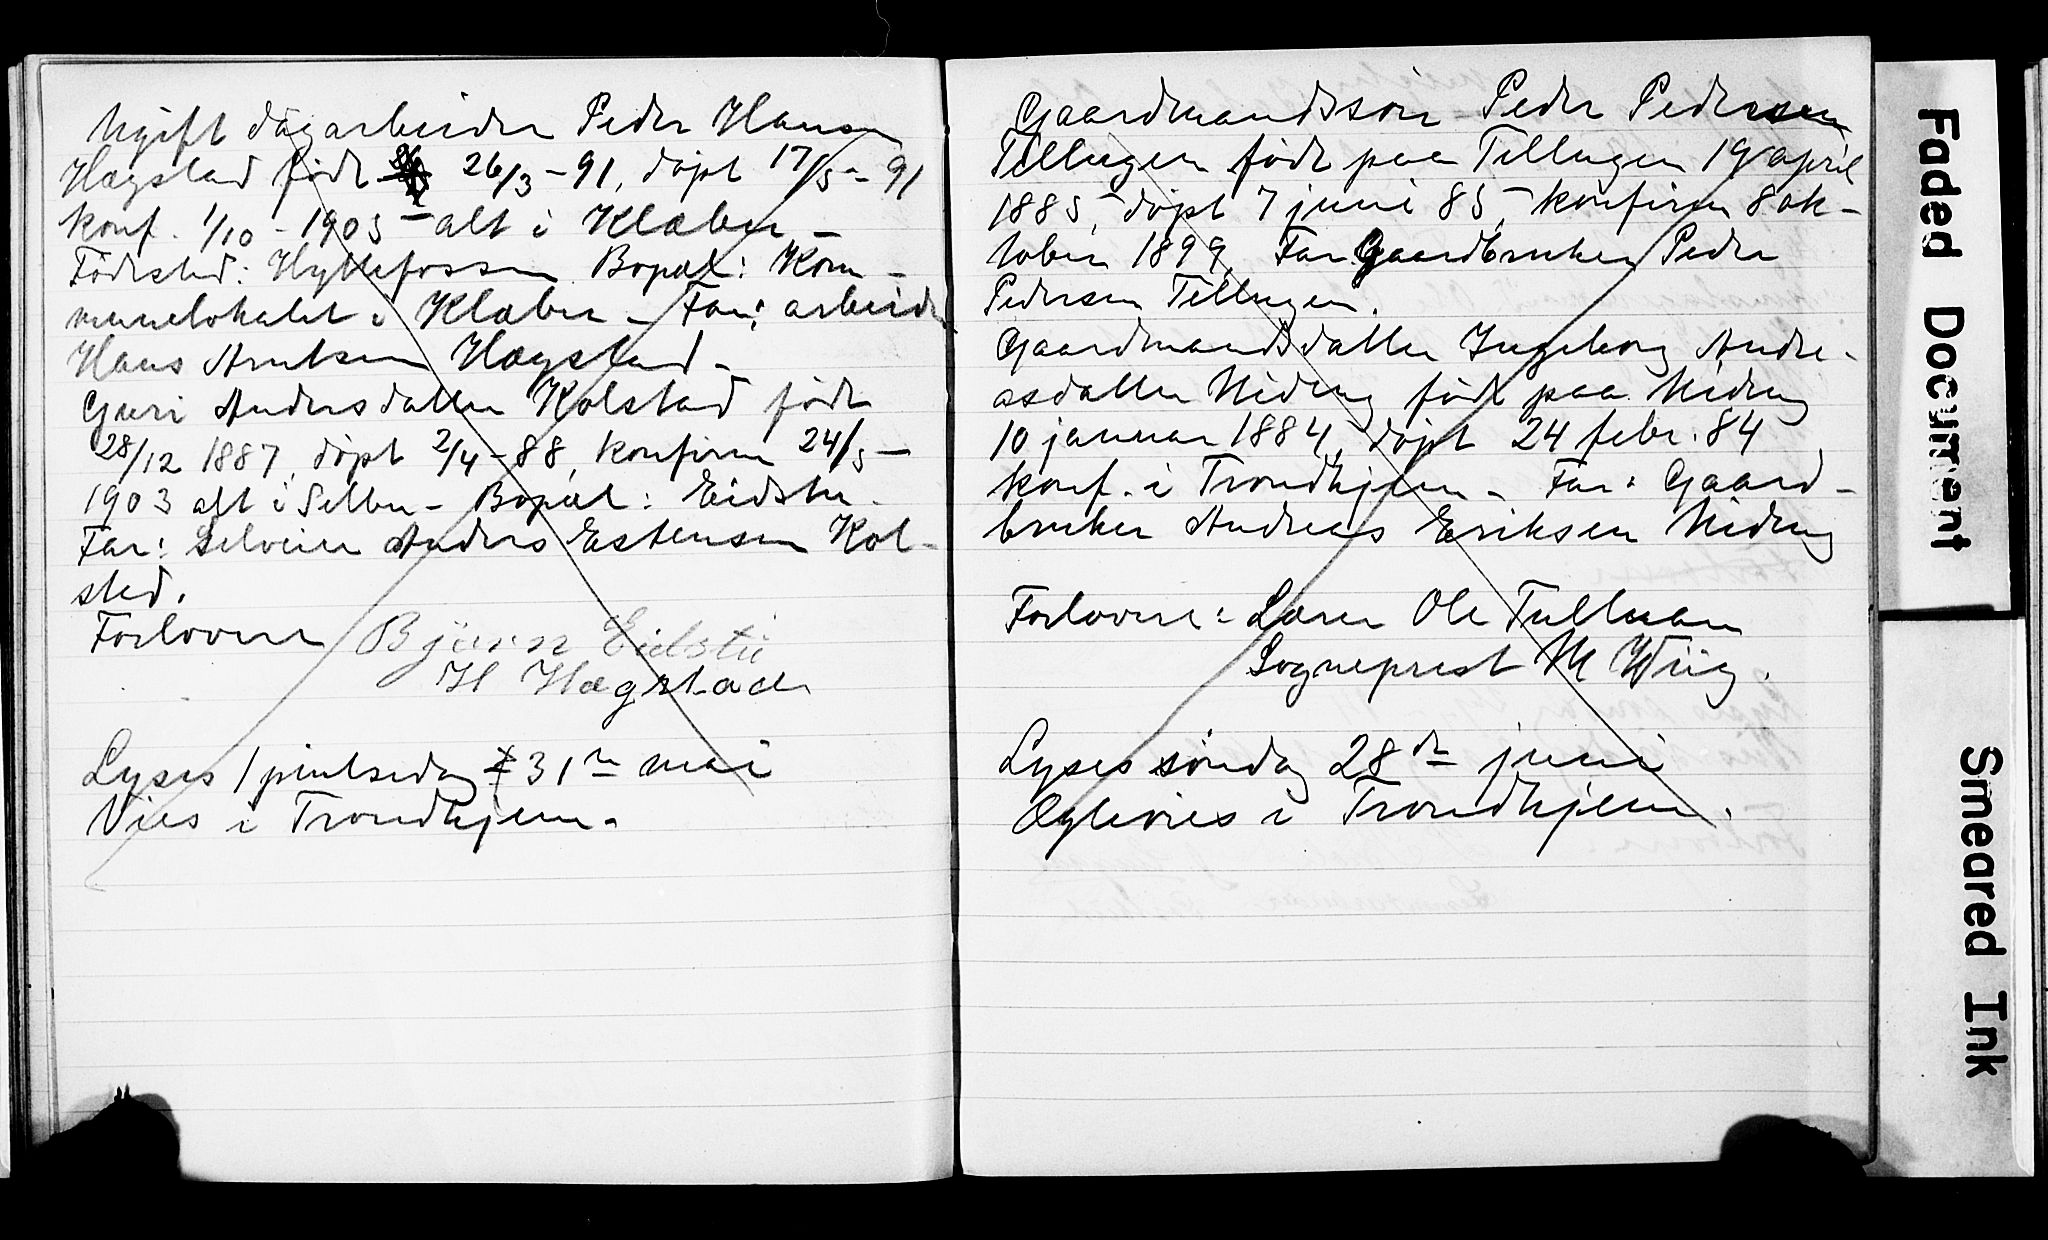 Ugift dagarbeider Peder Hansen
Hagstad født 26/3-91, døpt 17/5-91
konf. 1/10-1905 - alt i Klæbu -
Fødested: Hyttefossen Bopæl: Kom-
munelokalet i Klæbu - Far: arbeider
Hans Arntsen Hagstad -
Guri Andersdatter Kolstad født
28/12 1887, døpt 2/4-88, konfirm 24/5-
1903 alt i Selbu - Bopæl: Eidstu.
Far: Selveier Anders Estensen Kol-
sted.
Forlovere Bjarn Eidstu
H Hagstad
Lyses 1 pintsedag 31te mai
Vies i Trondhjem.
Gaardmandssøn Peder Pedersen
Tellugen født paa Tellugen 19 april
1885, døpt 7 juni 85, - konfirm 8 ok-
tober 1899, Far Gaardbruker Peder
Pedersen Tellugen.
Gaardmandsdatter Ingeborg Andre-
asdatter Nideng født paa Nideng
10 januar 1884, døpt 24 febr. 84,
konf. i Trondhjem - Far: Gaard-
bruker Andreas Eriksen Nideng
Forlovere: Lærer Ole Tulluan
Sogneprest M Wiig.
Lyses søndag 28de juni
Ægtevies i Trondhjem.
Faded Document
Smeared Ink